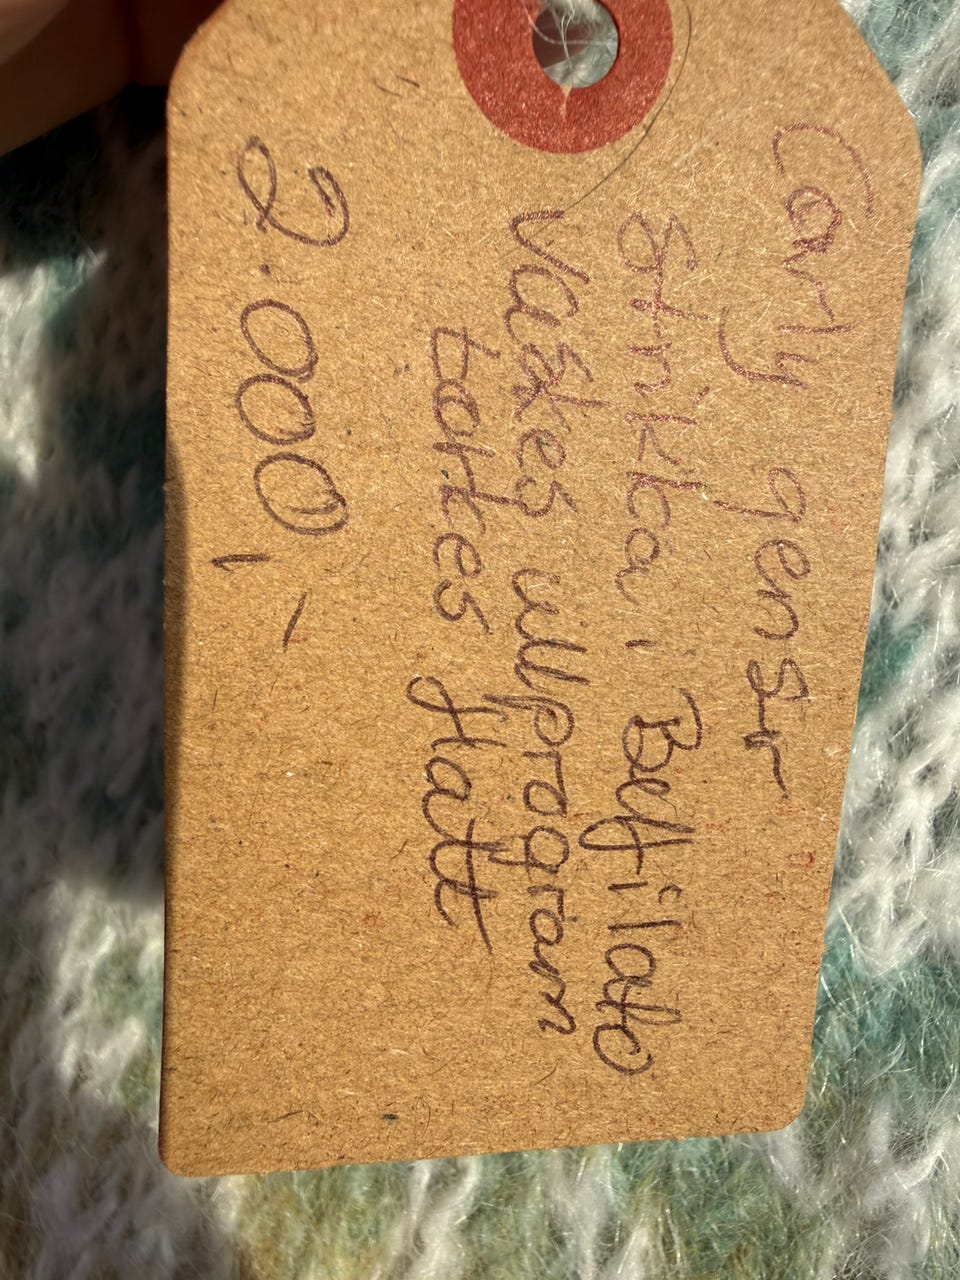 Carly genser
Strikka i Belfilato
Vaskes ullprogram
tørkes flatt
2.000,-